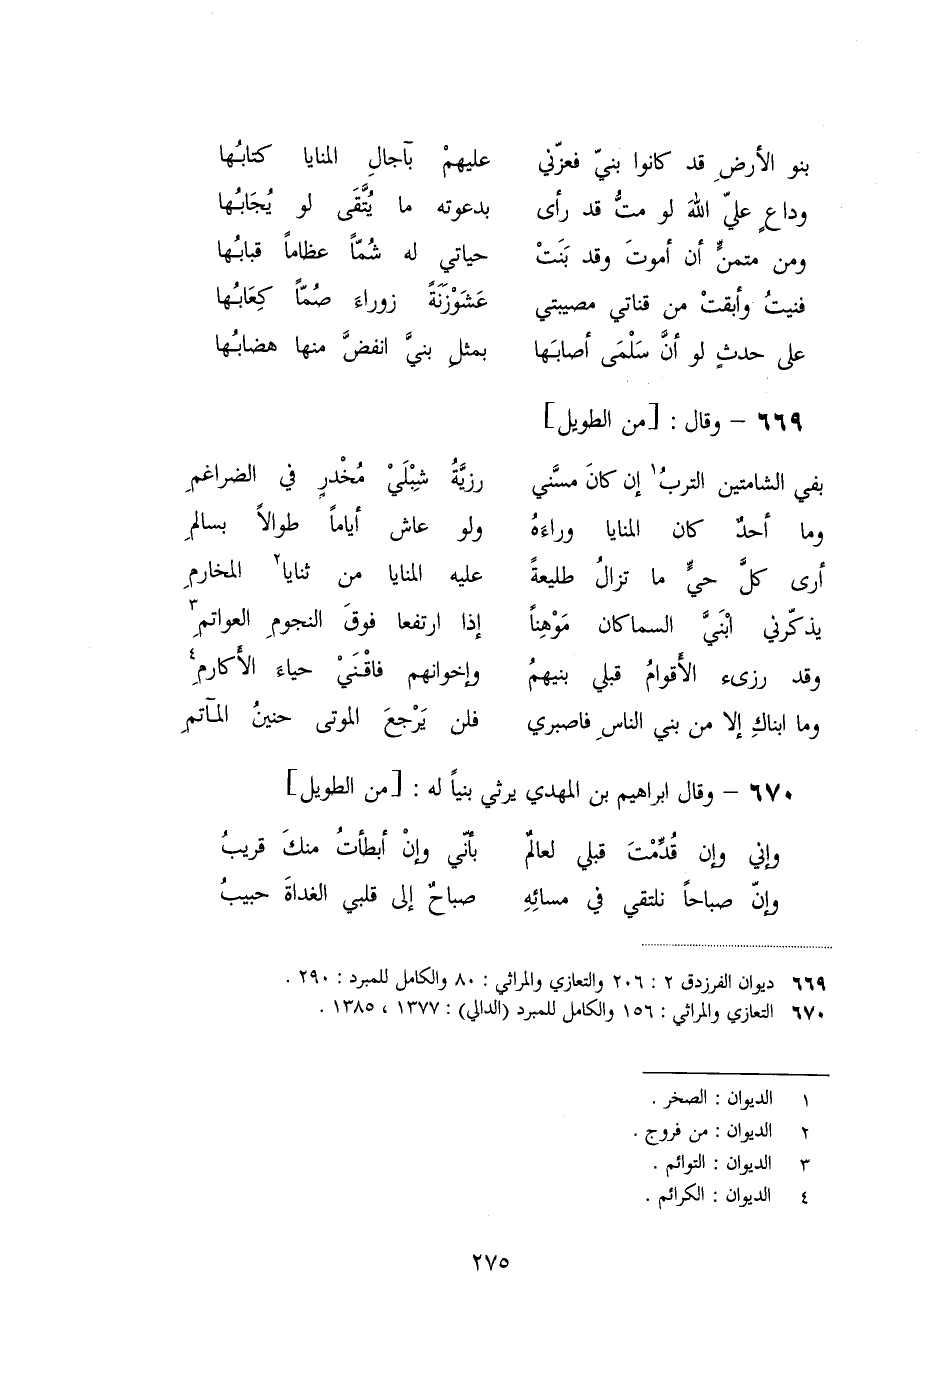 بنو الأرضِ قد كانوا بنيّ فعزّني عليهمْ بآجالِ المنايا كتابُها
وداعٍ عليّ اللهَ لو متُّ قد رأى بدعوته ما يُتَّقَى لو يُجَابُها
ومن متمنٍّ أن أموتَ وقد بَنَتْ حياتي له شُمّاً عظاماً قبابُها
فنيتُ وأبقتْ من قناتي مصيبتي عَشَوْزَنَةً زوراءَ صُمّاً كِعَابُها
على حدثٍ لو أنَّ سَلْمَى أصابَها بمثلِ بنيَّ انفضَّ منها هضابُها
٦٦٩ – وقال : [من الطويل]
بفي الشامتين التربُ١ إن كانَ مسَّني رزيَّةُ شِبْلَيْ مُخْدرٍ في الضراغمِ
وما أحدٌ كان المنايا وراءَهُ ولو عاش أياماً طوالاً بسالمِ
أرى كلَّ حيٍّ ما تزالُ طليعةً عليه المنايا من ثنايا٢ المخارمِ
يذكّرني ابْنَيَّ السماكان مَوْهِناً إذا ارتفعا فوقَ النجومِ العواتمِ٣
وقد رزىء الأقوامُ قبلي بنيهمُ وإخوانهم فاقْنَيْ حياءَ الأكارمِ٤
وما ابناكِ إلا من بني الناسِ فاصبري فلن يَرْجعَ الموتى حنينُ المآتمِ
٦٧٠ – وقال ابراهيم بن المهدي يرثي بنياً له : [من الطويل]
وإني وإن قُدِّمْتَ قبلي لعالمٌ بأنّي وإنْ أبطأتُ منكَ قريبُ
وإنّ صباحاً نلتقي في مسائِهِ صباحٌ إلى قلبي الغداةَ حبيبُ
٦٦٩ ديوان الفرزدق ٢ : ٢٠٦ والتعازي والمراثي : ٨٠ والكامل للمبرد : ٢٩٠ .
٦٧٠ التعازي والمراثي : ١٥٦ والكامل للمبرد (الدالي) : ١٣٧٧ ، ١٣٨٥ .
١ الديوان : الصخر .
٢ الديوان : من فروج .
٣ الديوان : التوائم .
٤ الديوان : الكرائم .
٢٧٥